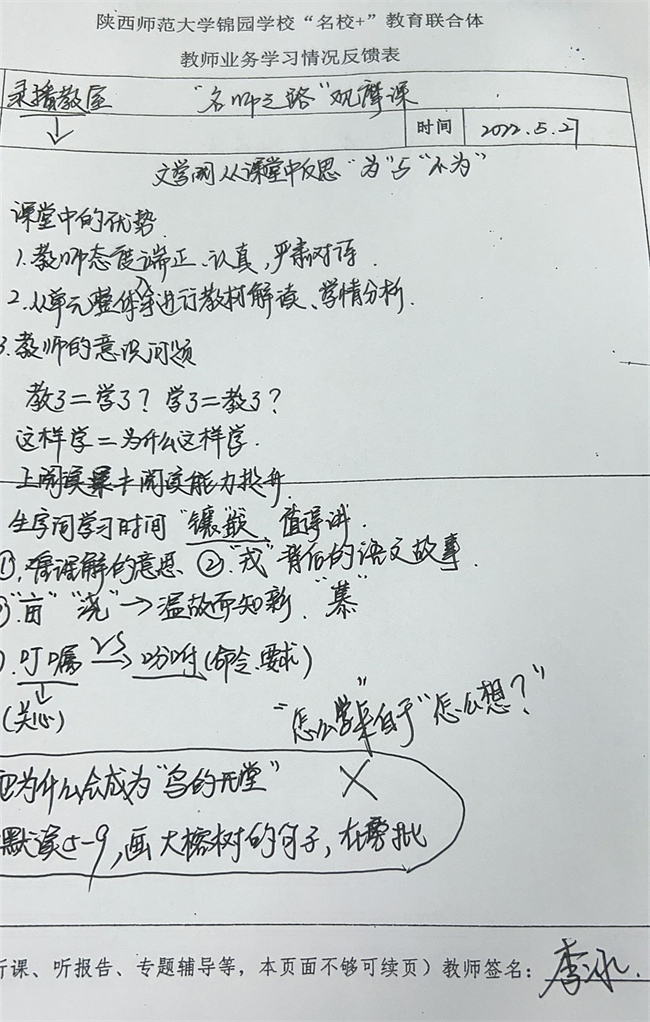 陕西师范大学锦园学校“名校+”教育联合体
教师业务学习情况反馈表
录播教室 “名师之路”观摩课
时间 2022.5.27
从课堂中反思“为”与“不为”
课堂中的优势
1.教师态度端正、认真,严肃对待.
2.从单元整体入手进行教材解读、学情分析.
3.教师的意识问题
教了=学了?学了=教了?
这样学=为什么这样学.
上阅读课 阅读能力提升.
生字词学习时间“镶嵌”值得讲.
①.难理解的意思、②.“戎”背后的语文故事.
“亩”“浇”→温故而知新.“慕”
叮嘱 VS→ 吩咐(命令、要求)
↓
(关心)
“怎么学”来自于“怎么想?”
为什么会成为“鸟的天堂” ×
默读5-9,画大榕树的句子,在旁批
听课、听报告、专题辅导等,本页面不够可续页)教师签名:李冰.